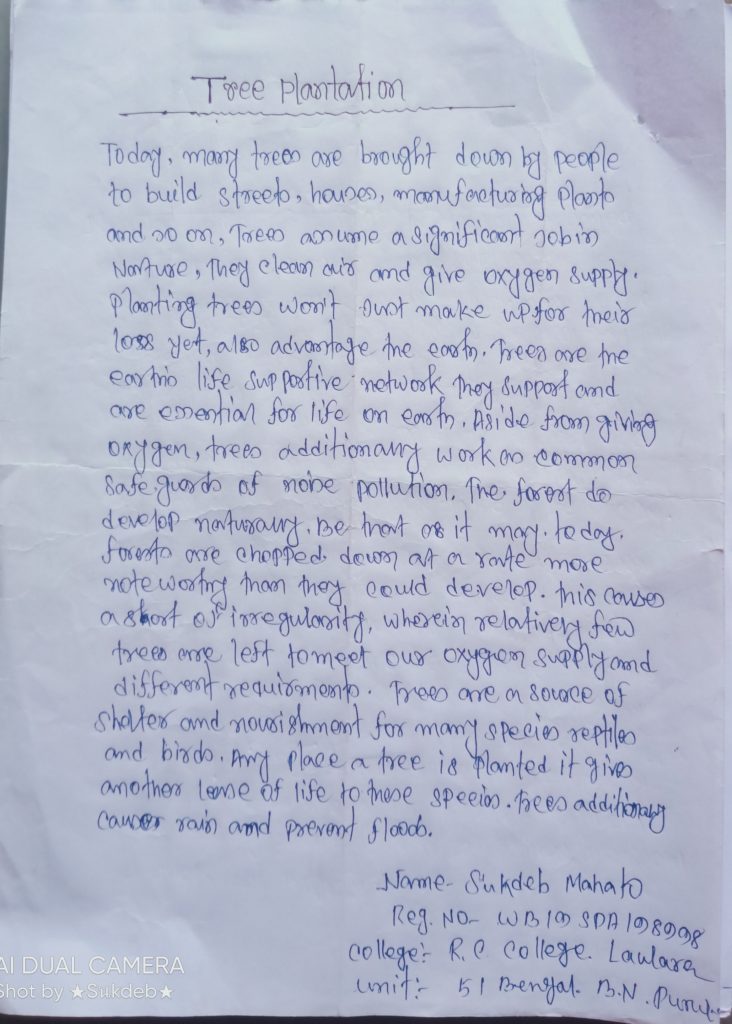 Tree Plantation
Today, many trees are brought down by people
to build streets, houses, manufacturing plants
and so on, Trees assume a significant job in
Nature, They clean air and give oxygen supply.
Planting trees won't Just make up for their
loss yet, also advantage the earth. Trees are the
earth's life supportive network they support and
are essential for life on earth. Aside from giving
oxygen, trees additionary work as common
safe guards of noise pollution. The forest do
develop naturally. Be that as it may. today.
forests are chopped down at a rate more
note worthy than they could develop. this causes
a short of irregularity, wherein relatively few
trees are left to meet our oxygen supply and
different requirments. Trees are a source of
shalter and nourishment for many species reptiles
and birds. Any place a tree is planted it gives
another lease of life to these species. trees additionary
causes rain and prevent floods.
Name- Sukdeb Mahato
Reg. NO- WB19 SDA
College:- R.C College. Laulara
Unit:- 51 Bengal. B.N.
AI DUAL CAMERA
Shot by ★Sukdeb★